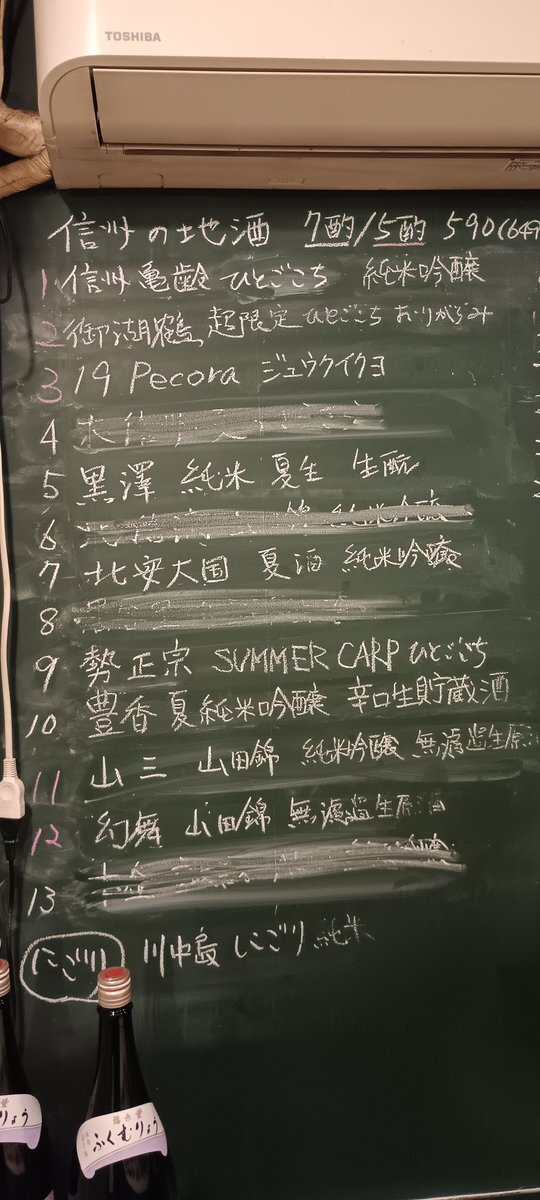 TOSHIBA
信州の地酒 7酌/5酌 590(649
1 信州亀齢 ひとごこち 純米吟醸
2 御湖鶴 超限定 ひとごこち おりがらみ
3 19 Pecora ジュウクイクヨ
4
5 黒澤 純米 夏生 生酛
6
7 北安大国 夏酒 純米吟醸
8
9 勢正宗 SUMMER CARP ひとごこち
10 豊香 夏純米吟醸 辛口生貯蔵酒
11 山三 山田錦 純米吟醸 無濾過生原酒
12 幻舞 山田錦 無濾過生原酒
13
にごり 川中島 にごり 純米
ふくむりょう